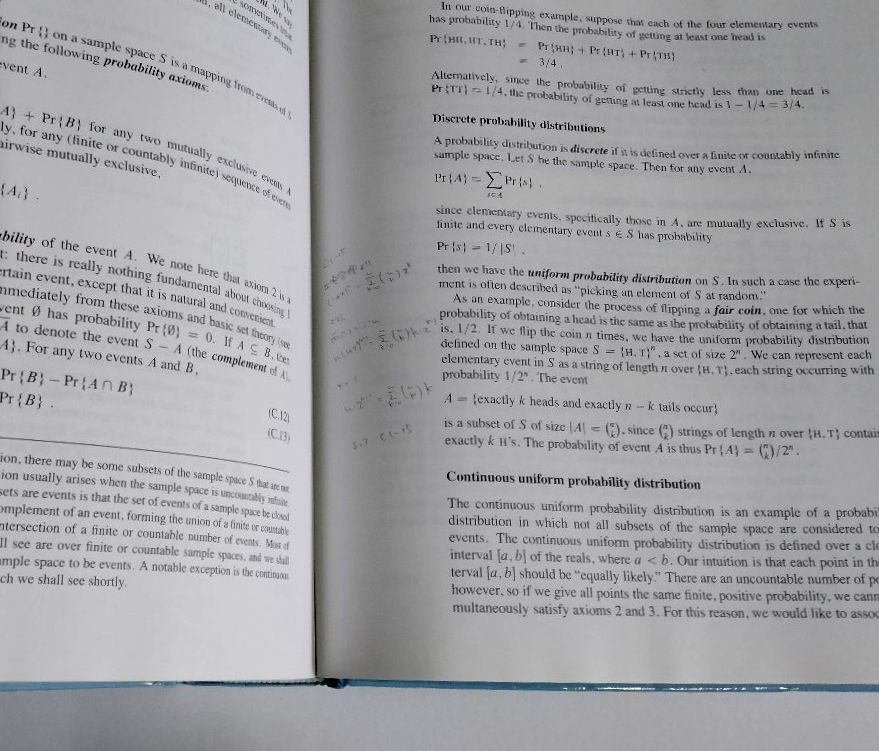 sometimes
all elementary events
Pr {} on a sample space S is a mapping from events of S
the following probability axioms:
A.
A} + Pr {B} for any two mutually exclusive events A
for any (finite or countably infinite) sequence of events
mutually exclusive,
{Aᵢ} .
of the event A. We note here that axiom 2 is a
: there is really nothing fundamental about choosing 1
event, except that it is natural and convenient.
from these axioms and basic set theory (see
Ø has probability Pr {Ø} = 0. If A ⊆ B, then
A̅ to denote the event S − A (the complement of A),
A}. For any two events A and B,
Pr {B} − Pr {A ∩ B}
(C.12)
Pr {B} .
(C.13)
, there may be some subsets of the sample space S that are not
usually arises when the sample space is uncountably infinite.
sets are events is that the set of events of a sample space be closed
complement of an event, forming the union of a finite or countable
intersection of a finite or countable number of events. Most of
see are over finite or countable sample spaces, and we shall
to be events. A notable exception is the continuous
we shall see shortly.
In our coin-flipping example, suppose that each of the four elementary events
has probability 1/4. Then the probability of getting at least one head is
Pr {HH, HT, TH} = Pr {HH} + Pr {HT} + Pr {TH}
= 3/4 .
Alternatively, since the probability of getting strictly less than one head is
Pr {TT} = 1/4, the probability of getting at least one head is 1 − 1/4 = 3/4.
Discrete probability distributions
A probability distribution is discrete if it is defined over a finite or countably infinite
sample space. Let S be the sample space. Then for any event A,
Pr {A} = ∑ Pr {s} ,
s∈A
since elementary events, specifically those in A, are mutually exclusive. If S is
finite and every elementary event s ∈ S has probability
Pr {s} = 1/ |S| ,
then we have the uniform probability distribution on S. In such a case the experi-
ment is often described as "picking an element of S at random."
As an example, consider the process of flipping a fair coin, one for which the
probability of obtaining a head is the same as the probability of obtaining a tail, that
is, 1/2. If we flip the coin n times, we have the uniform probability distribution
defined on the sample space S = {H, T}ⁿ, a set of size 2ⁿ. We can represent each
elementary event in S as a string of length n over {H, T}, each string occurring with
probability 1/2ⁿ. The event
A = {exactly k heads and exactly n − k tails occur}
is a subset of S of size |A| = (n k), since (n k) strings of length n over {H, T} contai
exactly k H's. The probability of event A is thus Pr {A} = (n k)/2ⁿ.
Continuous uniform probability distribution
The continuous uniform probability distribution is an example of a probabi
distribution in which not all subsets of the sample space are considered to
events. The continuous uniform probability distribution is defined over a clo
interval [a, b] of the reals, where a < b. Our intuition is that each point in th
terval [a, b] should be "equally likely." There are an uncountable number of po
however, so if we give all points the same finite, positive probability, we cann
multaneously satisfy axioms 2 and 3. For this reason, we would like to assoc